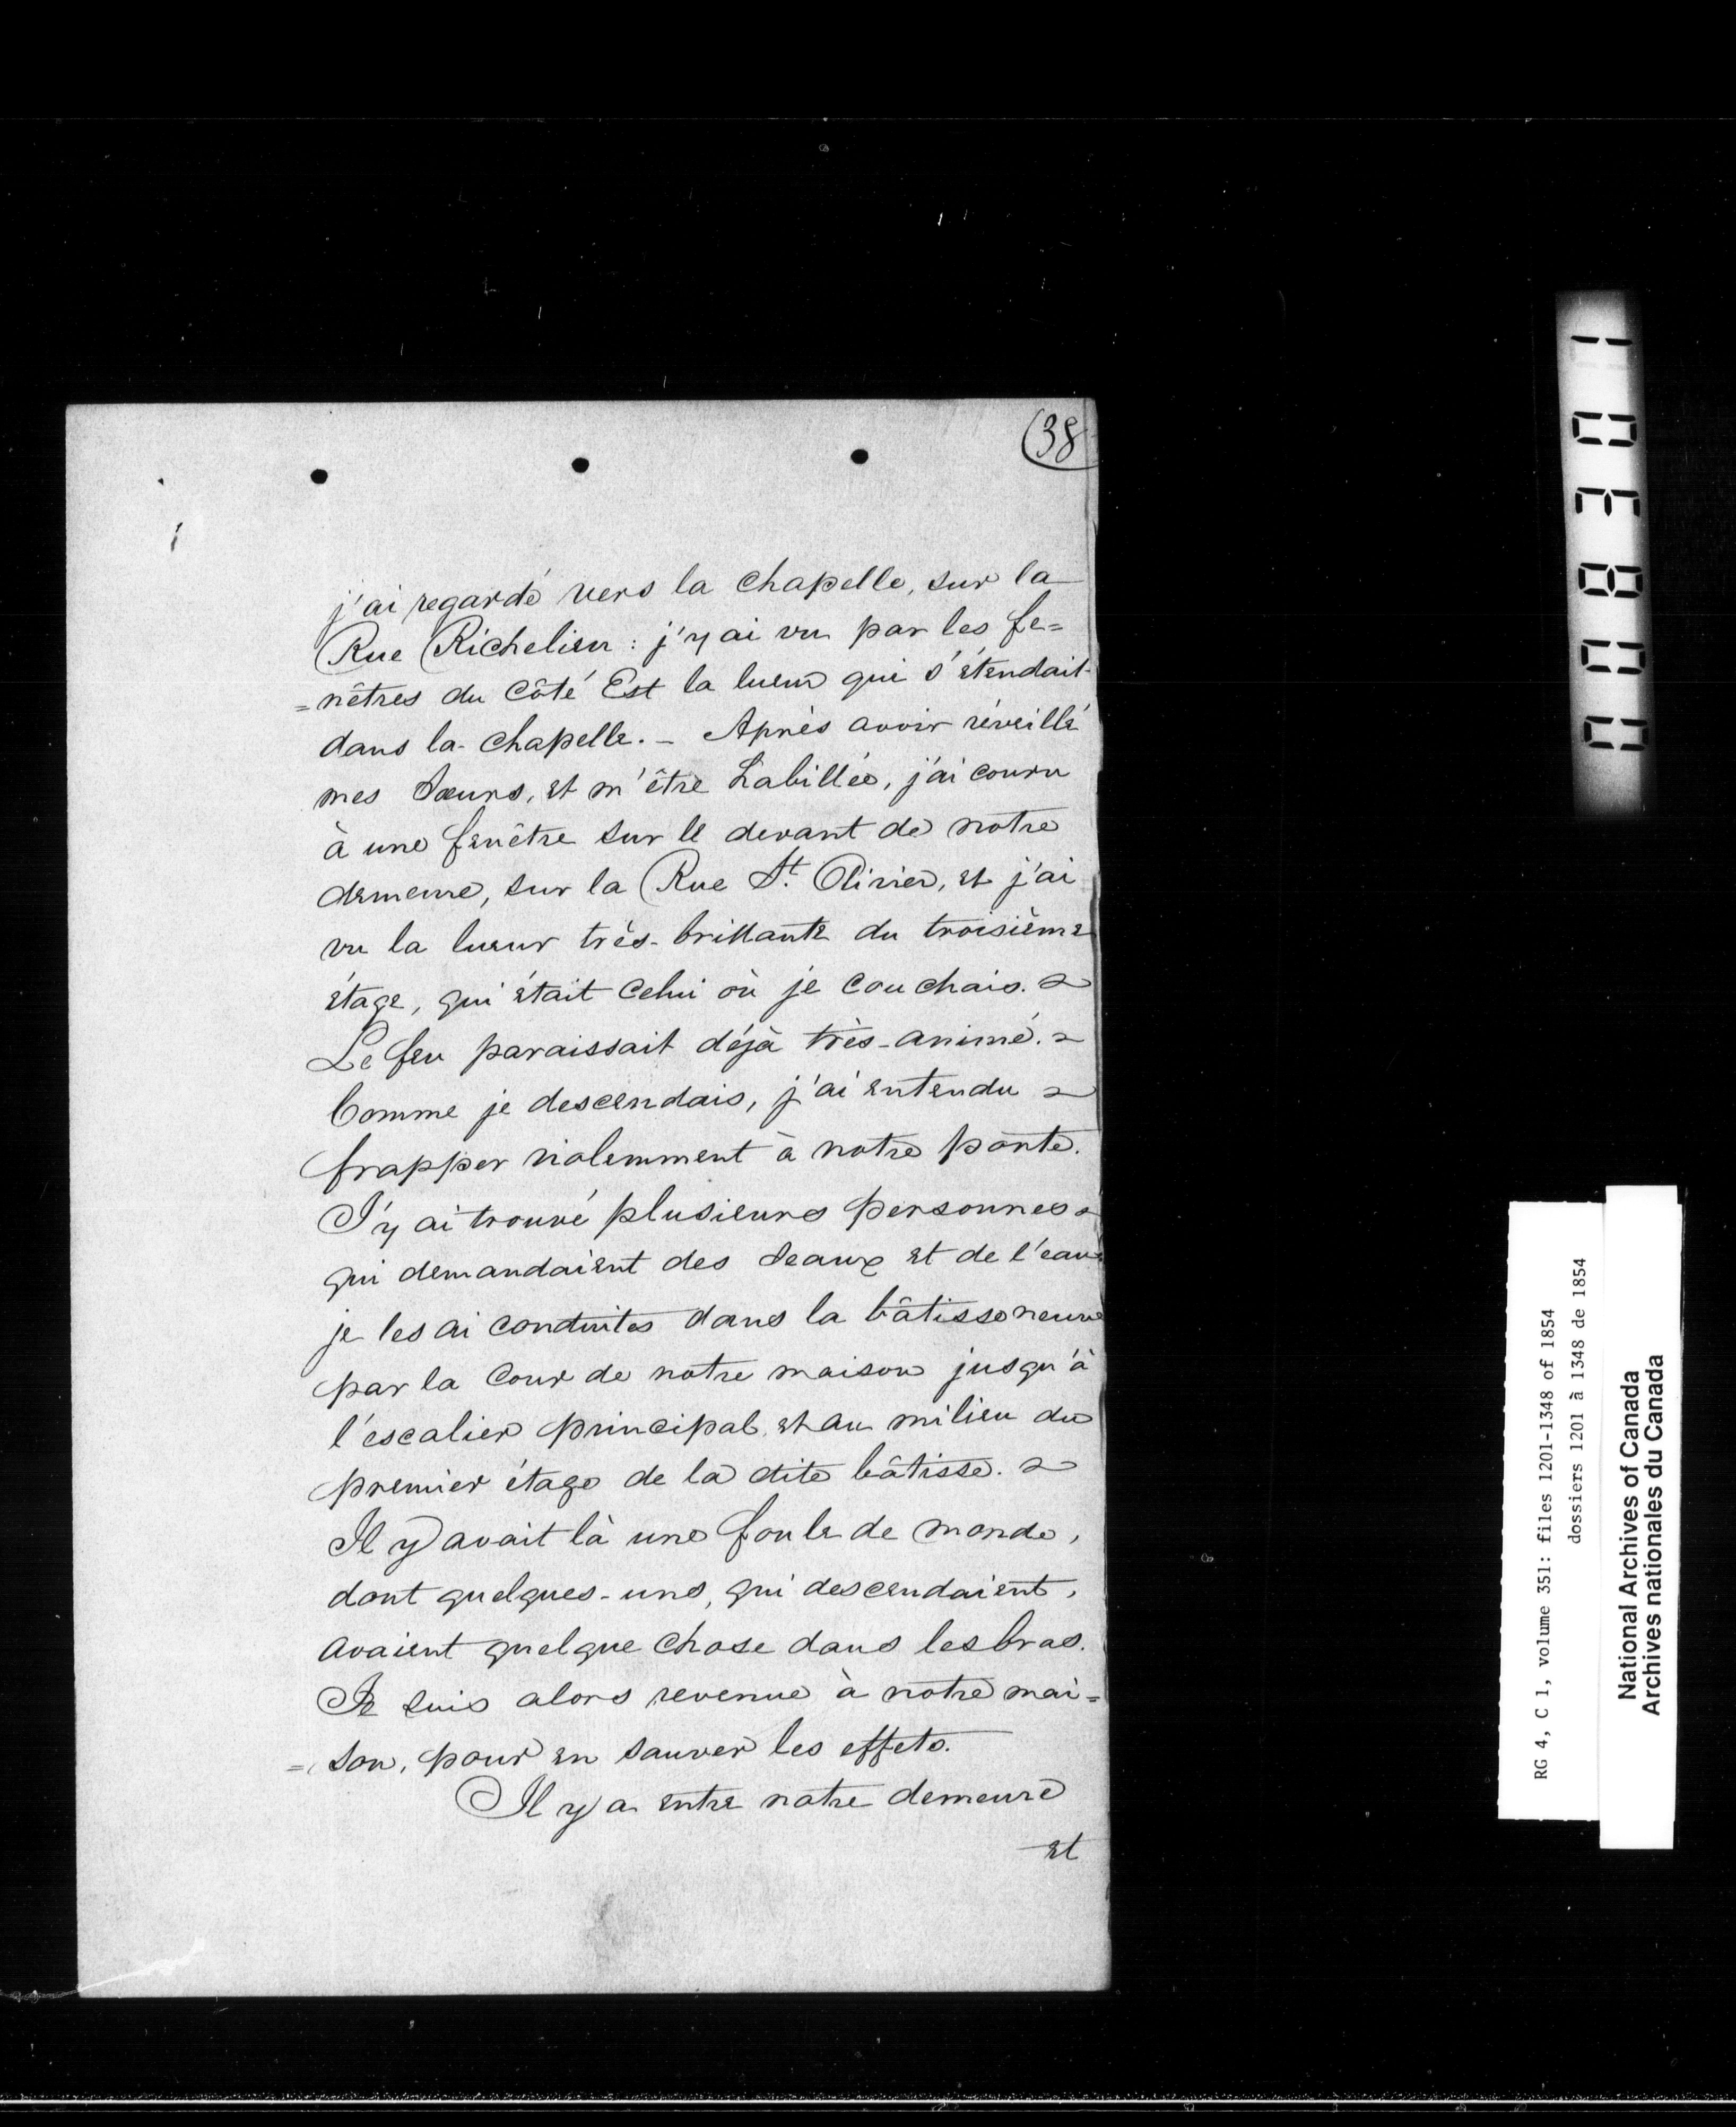 (38
j'ai regardé vers la chapelle, sur la
Rue Richelieu : j'y ai vu par les fe=
=nêtres du côté Est la lueur qui s'étendait
dans la chapelle. — Après avoir réveillé
mes Sœurs, et m'être habillée, j'ai couru
à une fenêtre sur le devant de notre
demeure, sur la Rue St. Olivier, et j'ai
vu la lueur très-brillante du troisième
étage, qui était celui où je couchais.
Le feu paraissait déjà très-animé.
Comme je descendais, j'ai entendu
frapper violemment à notre porte.
J'y ai trouvé plusieurs personnes
qui demandaient des Seaux et de l'eau
je les ai conduites dans la bâtisse neuve
par la cour de notre maison jusqu'à
l'escalier principal et au milieu du
premier étage de la dite bâtisse.
Il y avait là une foule de monde,
dont quelques-uns, qui descendaient,
avaient quelque chose dans les bras.
Je suis alors revenue à notre mai=
=son, pour en sauver les effets.
Il y a entre notre demeure
et
1 0 E 8 0 0
RG 4, C 1, volume 351: files 1201-1348 of 1854
dossiers 1201 à 1348 de 1854
National Archives of Canada
Archives nationales du Canada